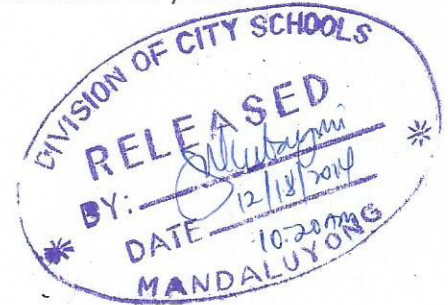 DIVISION OF CITY SCHOOLS
RELEASED
BY:
12/18/2014
DATE
10:20 AM
MANDALUYONG